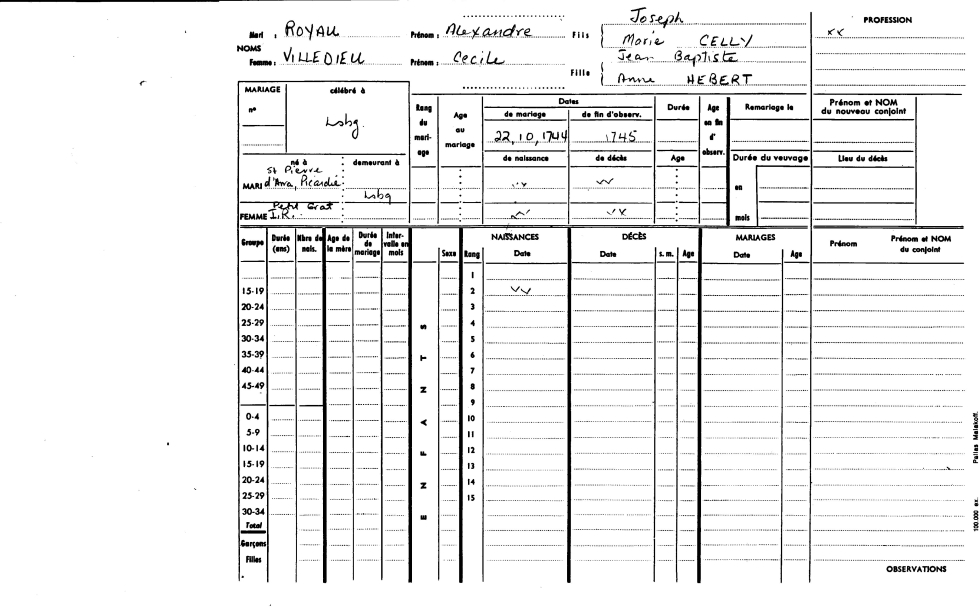 Joseph
Mari : ROYAU Prénom : Alexandre Fils { Marie CELLY
PROFESSION
xx
NOMS
Femme : VILLEDIEU Prénom : Cecile Fille { Jean Baptiste
Anne HEBERT
MARIAGE célébré à
n°
Lsbg.
Rang du mari-age
Age au mariage
Dates
de mariage de fin d'observ.
22,10,1744 1745
de naissance de décès
Durée
Age
Age en fin d' observ.
Remariage le
Durée du veuvage
en
mois
Prénom et NOM du nouveau conjoint
Lieu du décès
né à demeurant à
St Pierre
MARI d'Arra, Picardie
Lsbg
Petit Grat
FEMME I.R.
Groupe Durée (ans) Nbre de nais. Age de la mère Durée de mariage Inter-valle en mois
Sexe Rang
NAISSANCES
Date
DÉCÈS
Date s. m. Age
MARIAGES
Date Age
Prénom Prénom et NOM du conjoint
1
15-19 2
20-24 3
25-29 4
30-34 5
35-39 6
40-44 7
45-49 8
9
0-4 10
5-9 11
10-14 12
15-19 13
20-24 14
25-29 15
30-34
Total
Garçons
Filles
ENFANTS
OBSERVATIONS
100.000 ex. Pailles Malakoff.